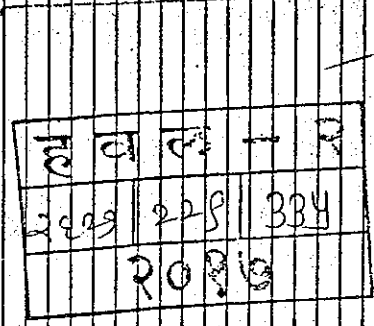 ह व ल - २
२६२७ || २२९ || ३३५
२०१७